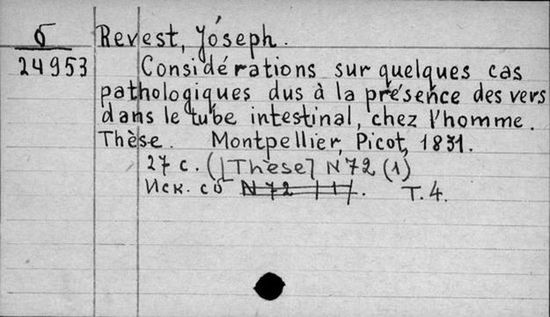 б Revest, Jóseph.
24953 Considérations sur quelques cas
pathologiques dus à la présence des vers
dans le tube intestinal, chez l'homme.
Thèse. Montpellier, Picot, 1831.
27 с. ([Thèse] N 72 (1)
Иск. сб N 72 (1). Т. 4.